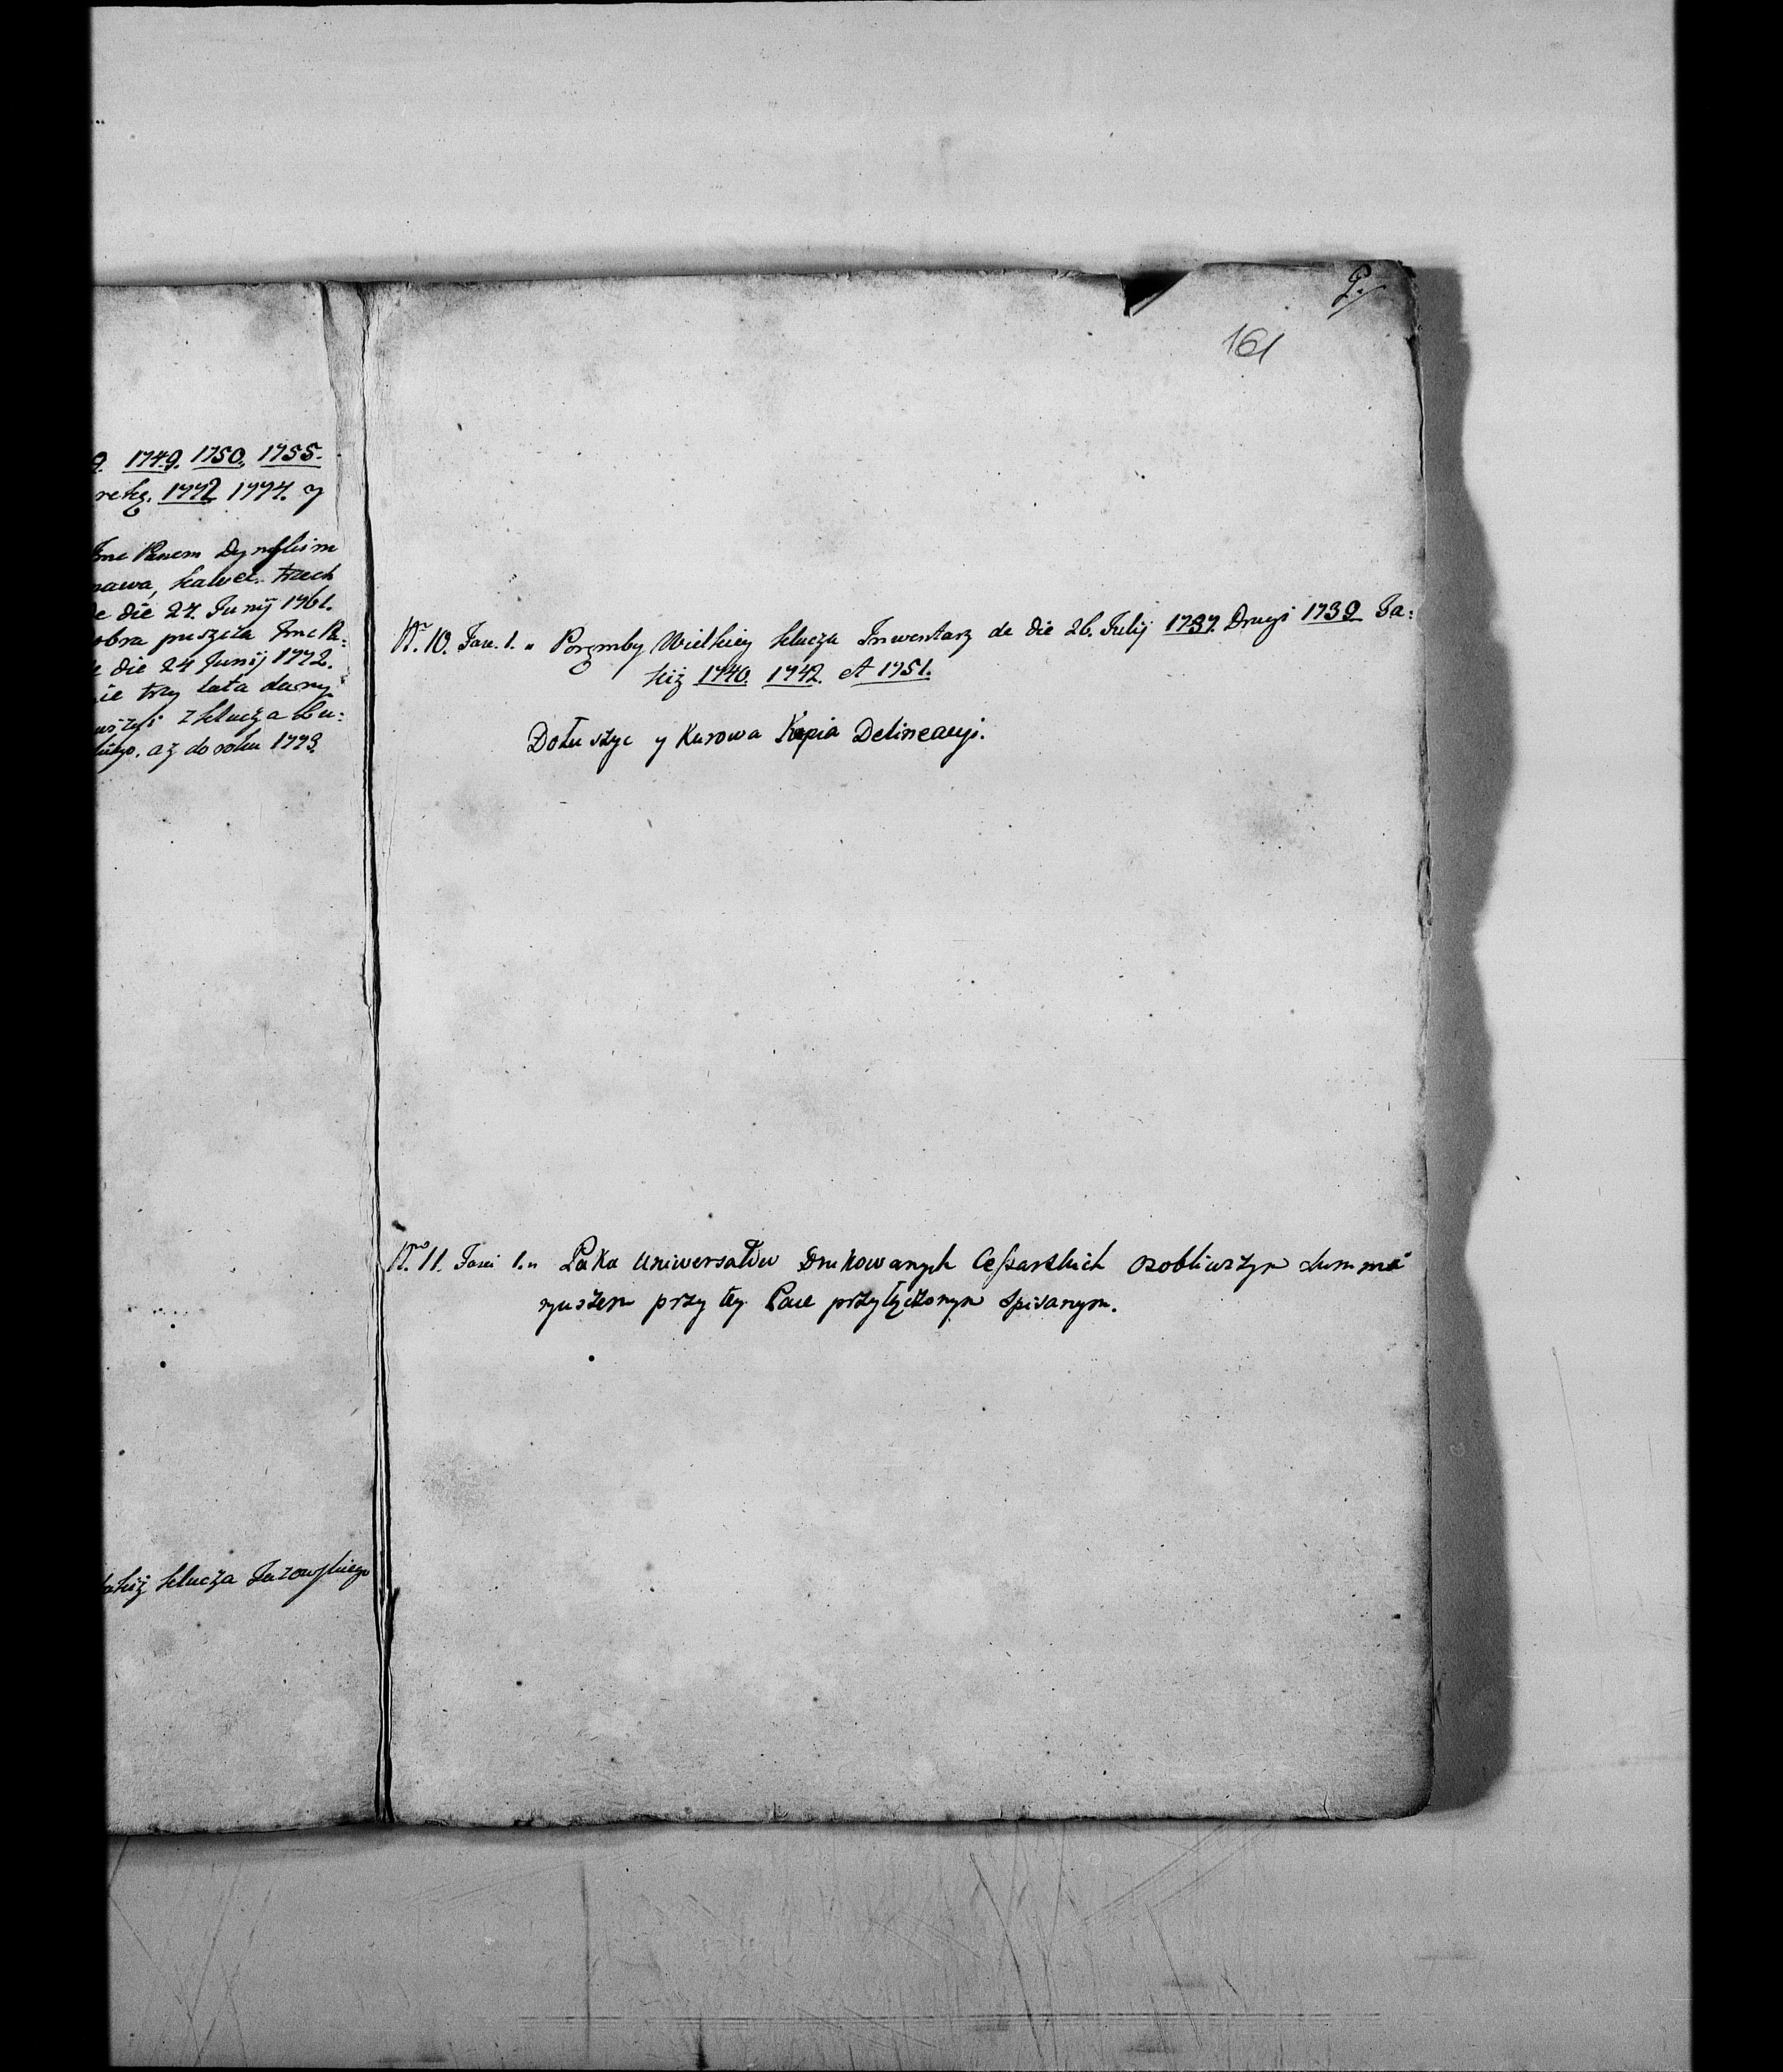 9. 1749. 1750. 1755.
1772 1774. y
Jmc Panem Dynskim
trzech
de die 24. Junij 1761.
obra puszcza Jmc Pa:
de die 24 Junij 1772.
ie trzy lata
z klucza Łu:
aż do roku 1773.
takiż klucza Jazowskiego
9.
161
Nr. 10. Fasc. 1. " Poręmby Wielkiey klucza Inwentarz de die 26. Julij 1737. Drugi 1739 Ta:
kiż 1740. 1742. et 1751.
Dołuszyc y Kurowa Kopia Delineacyi.
Nro 11. Fasci 1. " Paka Uniwersałów Drukowanych Cesarskich osobliwszym summa
ryuszem przy tey Pace przyłączonym spisanym.